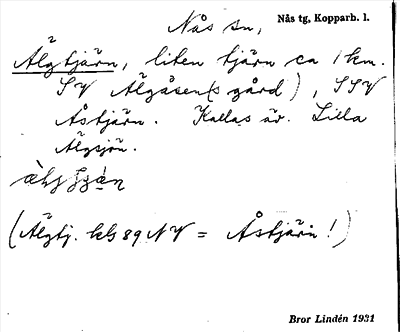 Nås sn,
Nås tg, Kopparb. l.
Älgtjärn, liten tjärn ca 1 km.
SV Älgåsen(s gård), SSV
Åstjärn. Kallas äv. Lilla
Älgsjön.
(Älgtj. kbl 89 NV = Åstjärn!)
Bror Lindén 1931